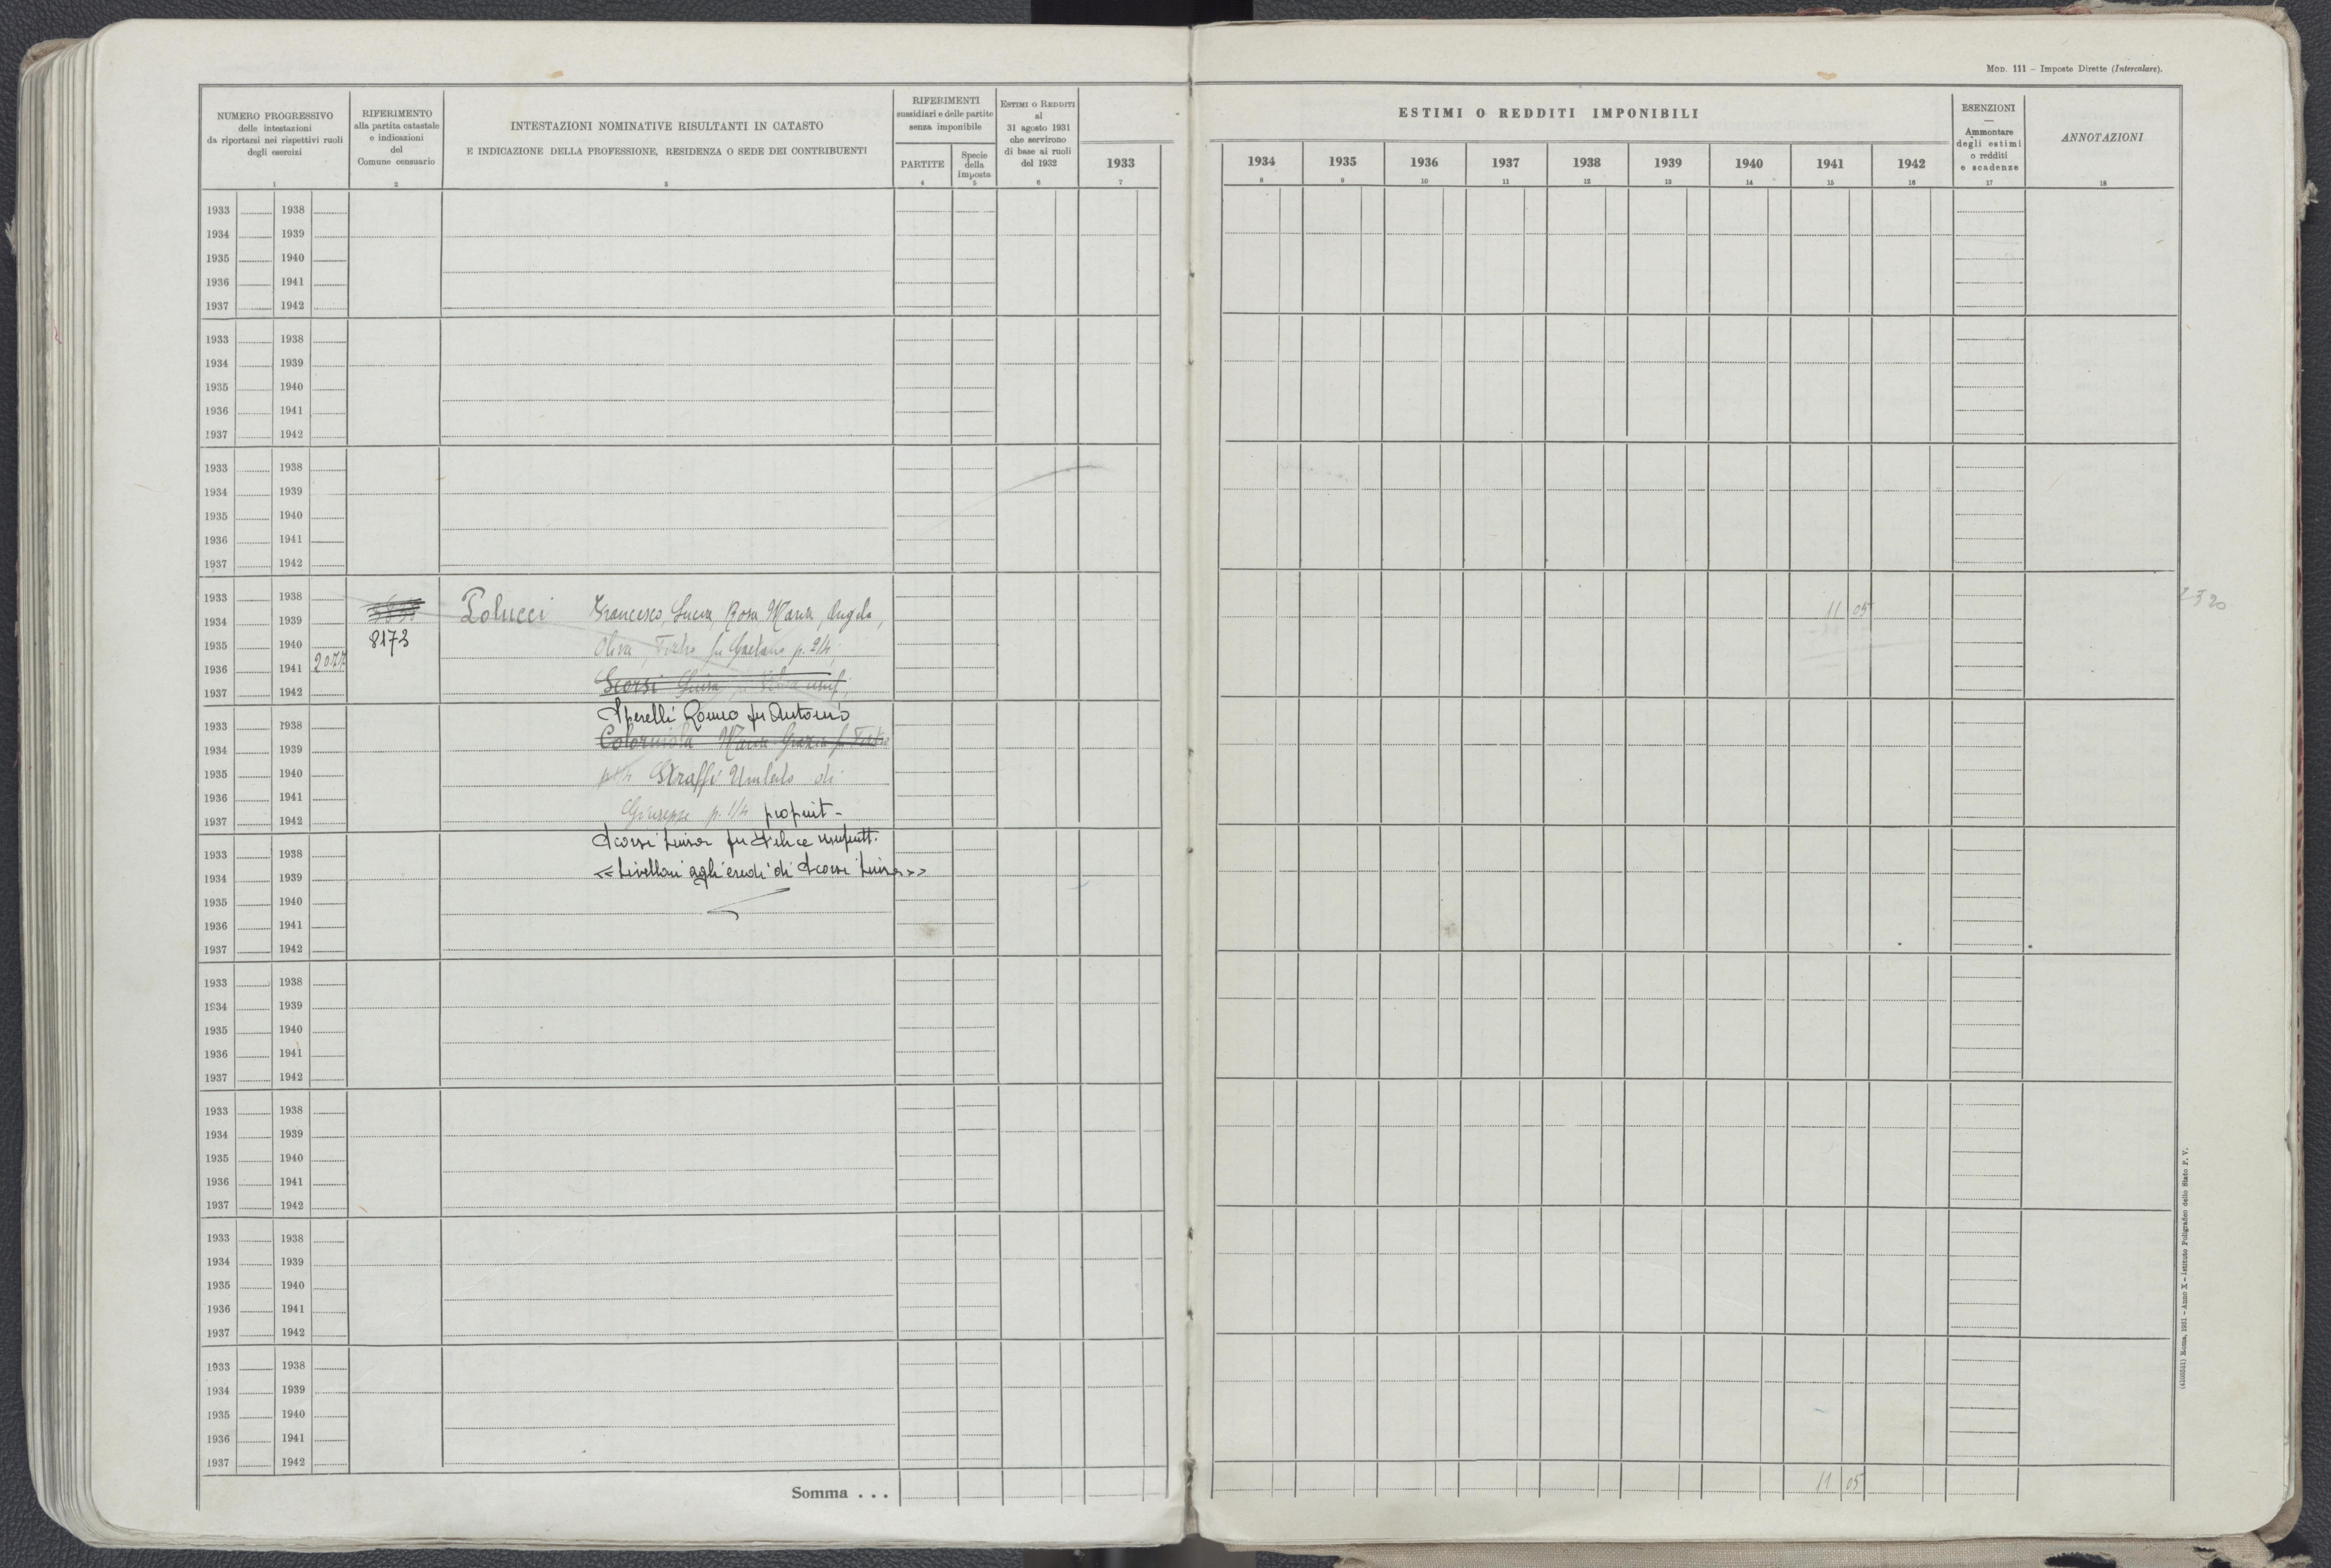 Mod. 111 – Imposte Dirette (Intercalare).
NUMERO PROGRESSIVO
delle intestazioni
da riportarsi nei rispettivi ruoli
degli esercizi
1
RIFERIMENTO
alla partita catastale
e indicazioni
del
Comune censuario
2
INTESTAZIONI NOMINATIVE RISULTANTI IN CATASTO
E INDICAZIONE DELLA PROFESSIONE, RESIDENZA O SEDE DEI CONTRIBUENTI
3
RIFERIMENTI
sussidiari e delle partite
senza imponibile
PARTITE
4
Specie
della
imposta
5
Estimi o Redditi
al
31 agosto 1931
che servirono
di base ai ruoli
del 1932
6
1933
7
ESTIMI O REDDITI IMPONIBILI
1934 1935 1936 1937 1938 1939 1940 1941 1942
8 9 10 11 12 13 14 15 16
ESENZIONI
—
Ammontare
degli estimi
o redditi
e scadenze
17
ANNOTAZIONI
18
1933 1938
1934 1939
1935 1940
1936 1941
1937 1942
1933 1938
1934 1939
1935 1940
1936 1941
1937 1942
1933 1938
1934 1939
1935 1940
1936 1941
1937 1942
1933 1938
1934 1939 Polucci Francesco, Lucia, Rosa Maria, Angela, 11 05
1935 1940 8173 Oliva, fu Gaetano p. 2/4;
1936 1941 2077
1937 1942 Scorsi Luisa
Aperelli Romeo fu Antonio
1933 1938
1934 1939 Maria Grazia fu
1935 1940 Straffi Umberto di
1936 1941
1937 1942 Giuseppe p. 1/4 propriet-
Scorsi Luisa fu Felice usufrutt.
1933 1938
1934 1939 «Livellari agli eredi di Scorsi Luisa»
1935 1940
1936 1941
1937 1942
1933 1938
1934 1939
1935 1940
1936 1941
1937 1942
1933 1938
1934 1939
1935 1940
1936 1941
1937 1942
1933 1938
1934 1939
1935 1940
1936 1941
1937 1942
1933 1938
1934 1939
1935 1940
1936 1941
1937 1942
Somma . . . 11 05
(4105541) Roma, 1931 – Anno X – Istituto Poligrafico dello Stato P. V.